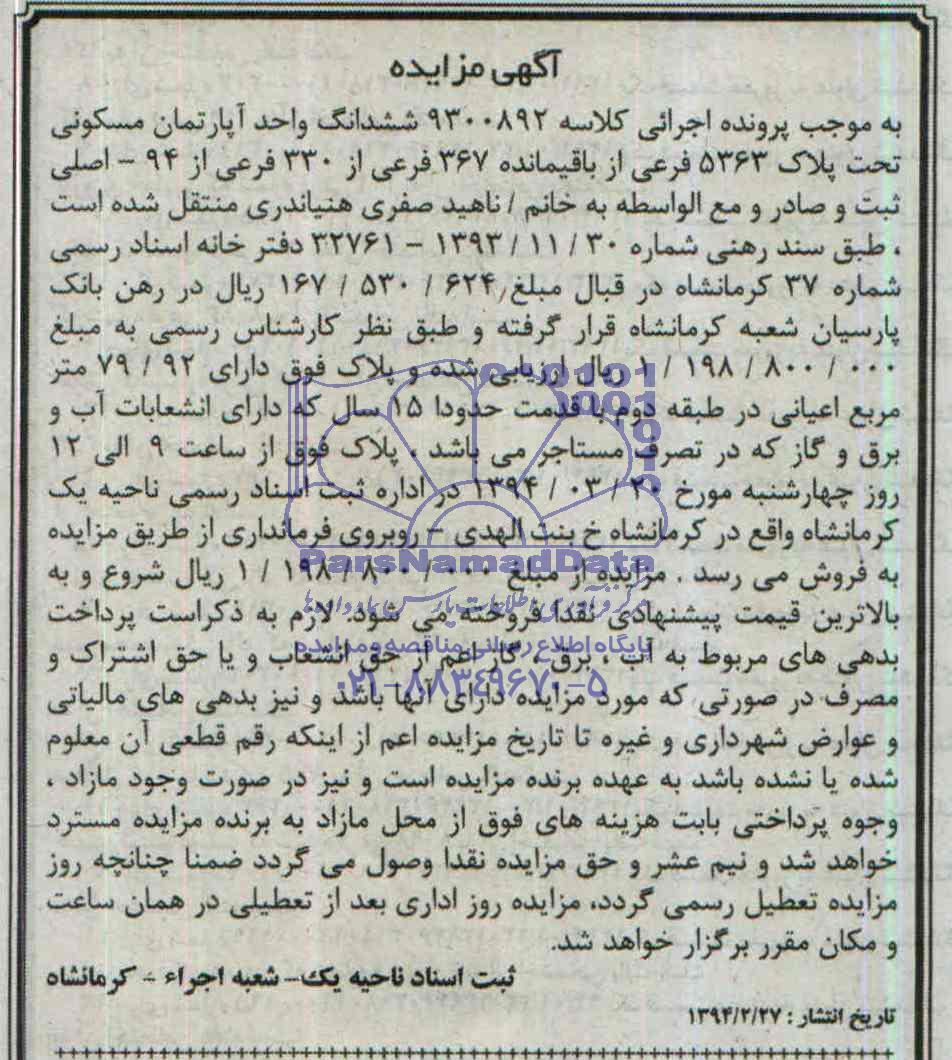 آگهی مزایده
به موجب پرونده اجرائی کلاسه ۹۳۰۰۸۹۲ ششدانگ واحد آپارتمان مسکونی
تحت پلاک ۵۳۶۳ فرعی از باقیمانده ۳۶۷ فرعی از ۳۳۰ فرعی از ۹۴ - اصلی
ثبت و صادر و مع الواسطه به خانم / ناهید صفری هنیاندری منتقل شده است
، طبق سند رهنی شماره ۳۰ / ۱۱ / ۱۳۹۳ - ۳۲۷۶۱ دفتر خانه اسناد رسمی
شماره ۳۷ کرمانشاه در قبال مبلغ ۶۲۴ / ۵۳۰ / ۱۶۷ ریال در رهن بانک
پارسیان شعبه کرمانشاه قرار گرفته و طبق نظر کارشناس رسمی به مبلغ
۰۰۰ / ۸۰۰ / ۱۹۸ / ۱ ریال ارزیابی شده و پلاک فوق دارای ۹۲ / ۷۹ متر
مربع اعیانی در طبقه دوم با قدمت حدودا ۱۵ سال که دارای انشعابات آب و
برق و گاز که در تصرف مستاجر می باشد ، پلاک فوق از ساعت ۹ الی ۱۲
روز چهارشنبه مورخ ۲۰ / ۰۳ / ۱۳۹۴ در اداره ثبت اسناد رسمی ناحیه یک
کرمانشاه واقع در کرمانشاه خ بنت الهدی - روبروی فرمانداری از طریق مزایده
ParsNamadData
به فروش می رسد . مزایده از مبلغ ۰۰۰ / ۸۰۰ / ۱۹۸ / ۱ ریال شروع و به
بالاترین قیمت پیشنهادی نقدا فروخته می شود. لازم به ذکراست پرداخت
پایگاه اطلاع رسانی مناقصه و مزایده
بدهی های مربوط به آب ، برق ، گاز اعم از حق انشعاب و یا حق اشتراک و
۰۲۱-۸۸۳۴۹۶۷۰-۵
مصرف در صورتی که مورد مزایده دارای آنها باشد و نیز بدهی های مالیاتی
و عوارض شهرداری و غیره تا تاریخ مزایده اعم از اینکه رقم قطعی آن معلوم
شده یا نشده باشد به عهده برنده مزایده است و نیز در صورت وجود مازاد ،
وجوه پرداختی بابت هزینه های فوق از محل مازاد به برنده مزایده مسترد
خواهد شد و نیم عشر و حق مزایده نقدا وصول می گردد ضمنا چنانچه روز
مزایده تعطیل رسمی گردد، مزایده روز اداری بعد از تعطیلی در همان ساعت
و مکان مقرر برگزار خواهد شد.
ثبت اسناد ناحیه یک- شعبه اجراء - کرمانشاه
تاریخ انتشار : ۱۳۹۴/۲/۲۷